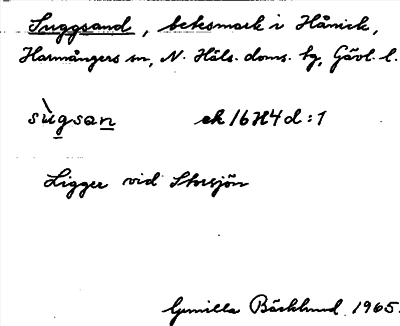 Suggsand, betesmark i Hånick,
Harmångers sn, N. Häls. doms. hg, Gävl. l.
sùgsan ek 16H4d:1
Ligger vid Storsjön
Gunilla Bäcklund 1965.